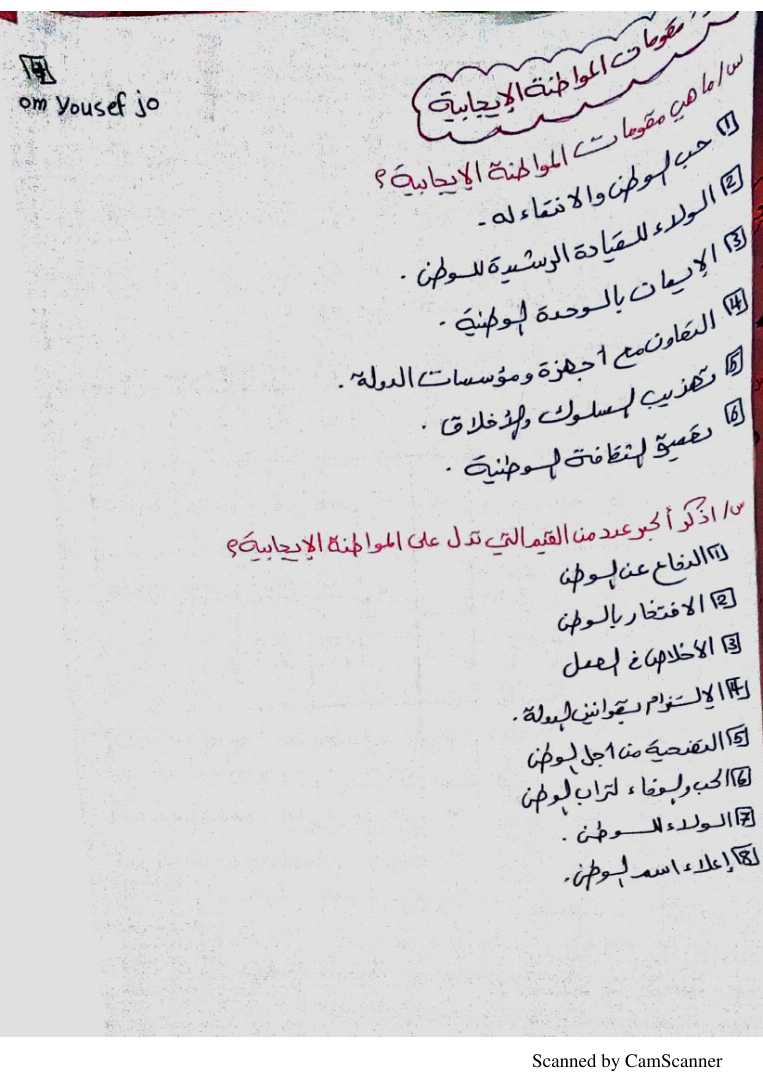 4
om Yousef jo
مقومات المواطنة الإيجابية
س/ ما هي مقومات المواطنة الإيجابية؟
1 حب الوطن والانتماء له .
2 الولاء للقيادة الرشيدة للوطن .
3 الإيمان بالوحدة الوطنية .
4 التعاون مع أجهزة ومؤسسات الدولة .
5 تهذيب السلوك والأخلاق .
6 تعميق الثقافة الوطنية .
س/ اذكر أكبر عدد من القيم التي تدل على المواطنة الإيجابية؟
1 الدفاع عن الوطن
2 الافتخار بالوطن
3 الاخلاص في العمل
4 الالتزام بقوانين الدولة .
5 التضحية من أجل الوطن
6 الحب والوفاء لتراب الوطن
7 الولاء للوطن .
8 إعلاء اسم الوطن .
Scanned by CamScanner